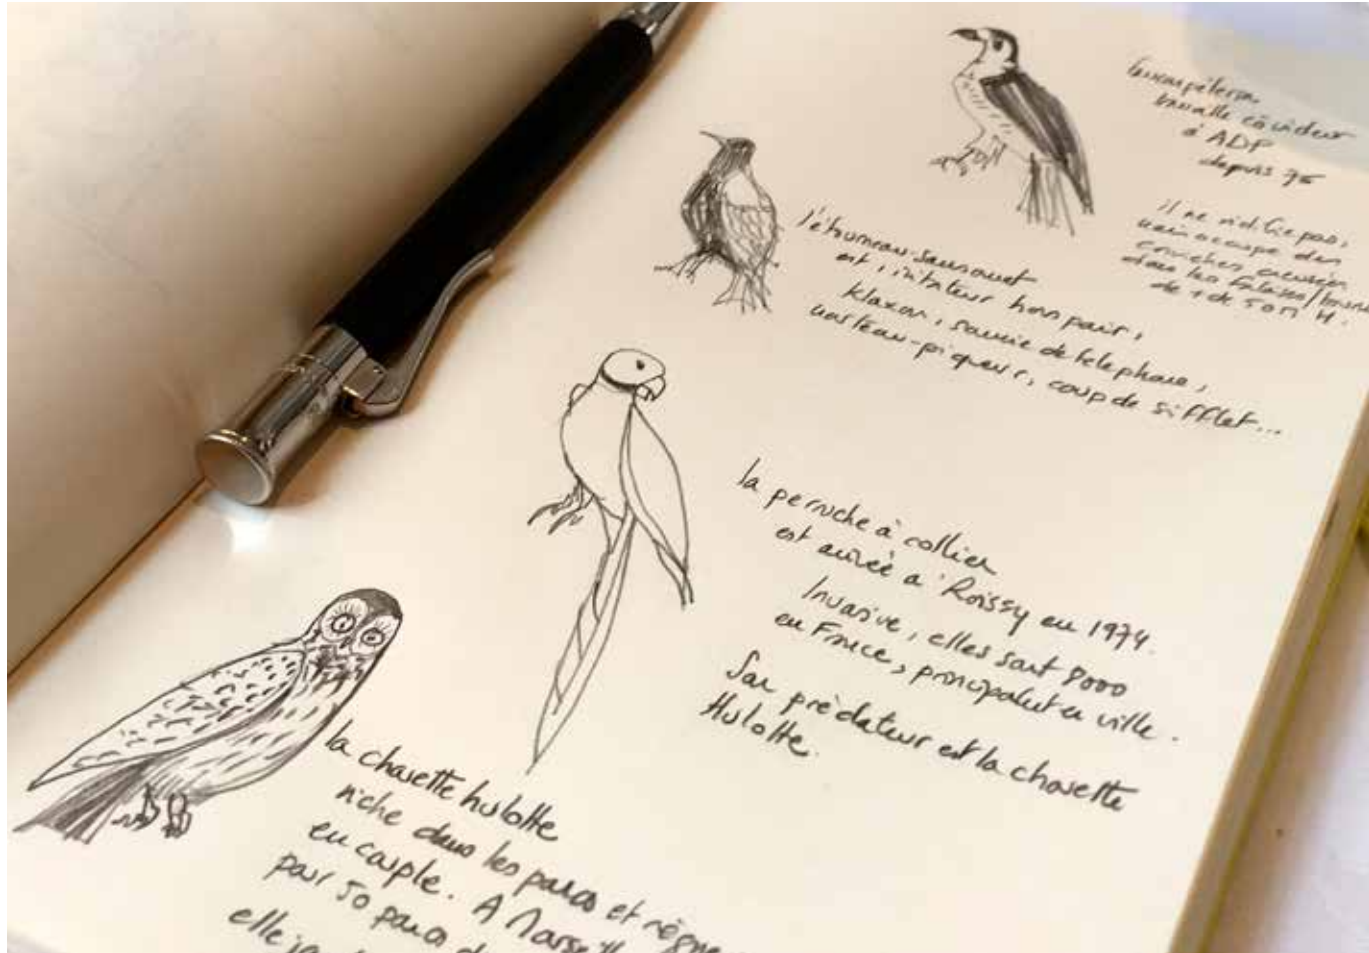 faucon pèlerin
travaille co videur
à ADP
depuis 75
il ne nidifie pas,
mais occupe des
corniches creusées
dans les falaises/tours
de + de 50m H.
l'étourneau-sansonnet
est imitateur hors pair,
klaxon, sonnerie de téléphone,
marteau-piqueur, coup de sifflet...
la perruche à collier
est arrivée à Roissy en 1974.
Invasive, elles sont 8000
en France, principalmt en ville.
Son prédateur est la chouette
Hulotte.
la chouette hulotte
niche dans les parcs et règne
en couple. A
pour 50 parcs
elle